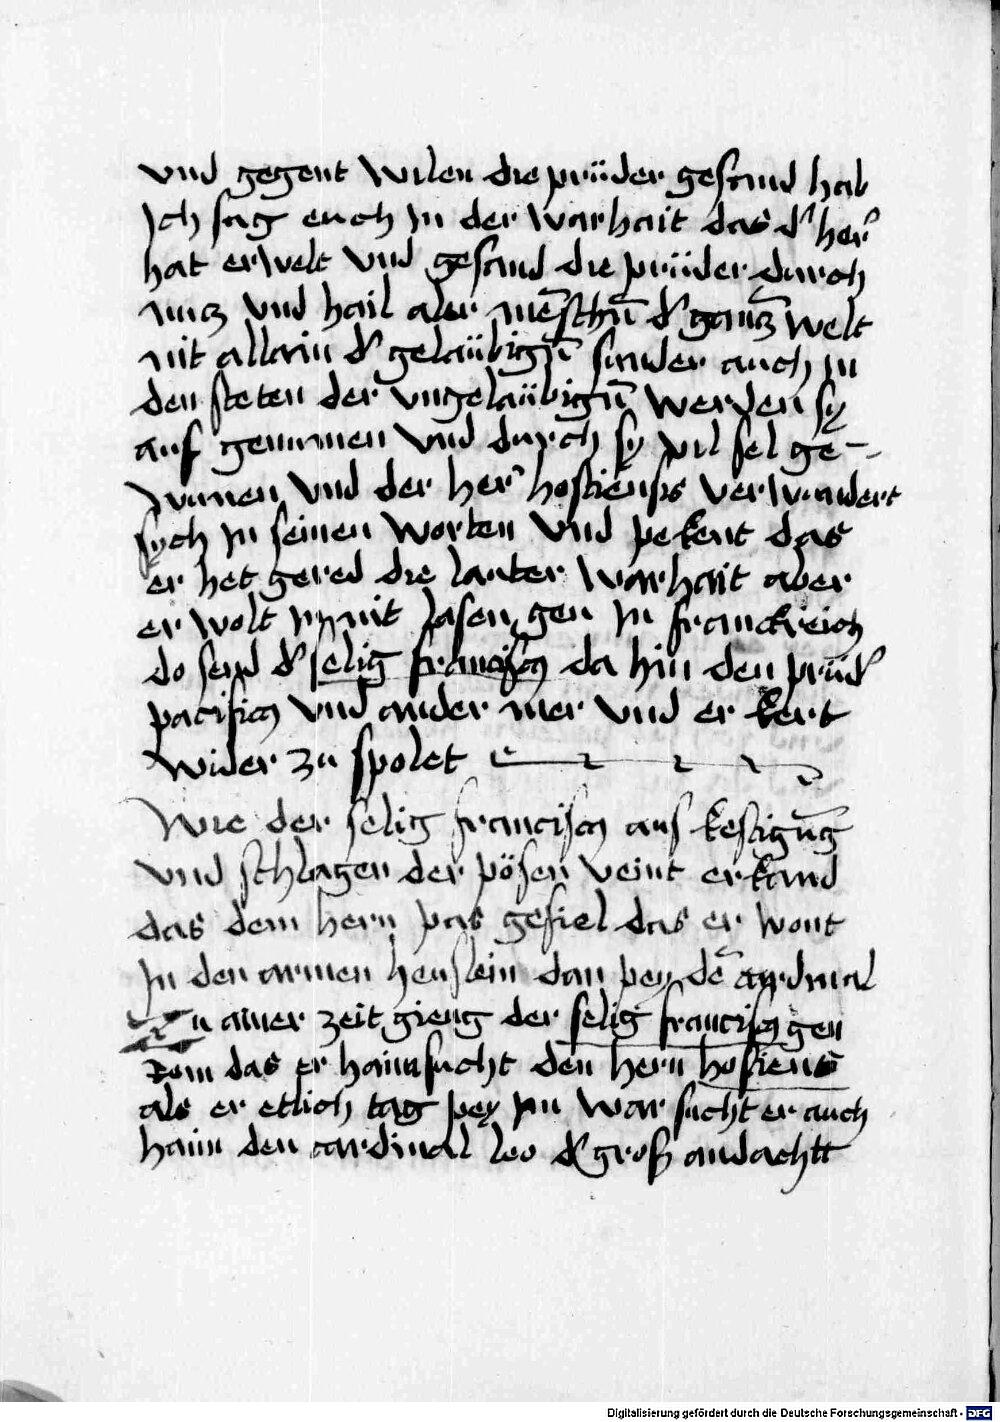 vnd gegent wilen die prüder gesand hab
Ich sag euch jn der warhait das d' her'
hat erwelt vnd gesand die prüder durch
nucz vnd hail aler mēschn̄ d' gancz̄ welt
nit allain d' geläubign̄ sunder auch jn
den steten der vngeläubign̄ werden sy
auf genumen vnd durch sy vil sel ge-
wunen vnd der her' hostiensis verwundert
sych jn seinen worten vnd pekent das
er het gered die lauter warhait aber
er wolt jn nit lasen gen jn franckreich
do send d' selig francisch da hin den prüd'
pacifich vnd ander mer vnd er kert
wider zu spolet
Wie der selig francisch aus kestigūg
vnd schlagen der pösen veint erkand
das dem hern pas gefiel das er wont
jn den armen heuslein dan pey dē cardinal
Zu ainer zeit gieng der selig francisch gen
Rom das er haimsucht den hern hostiens
als er etlich tag pey jm war sucht er auch
haim den cardinal leo d' groß andachtt
Digitalisierung gefördert durch die Deutsche Forschungsgemeinschaft - DFG